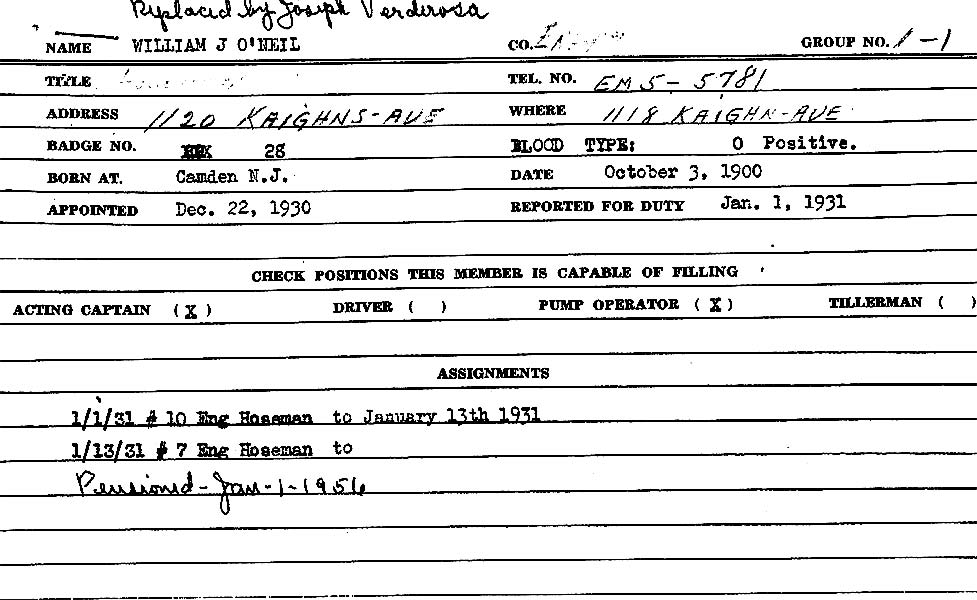 Replaced by Joseph Verderosa
NAME WILLIAM J O'NEIL CO. GROUP NO. 1-1
TITLE TEL. NO. EM 5-5781
ADDRESS 1120 KAIGHNS-AVE WHERE 1118 KAIGHN-AVE
BADGE NO. 28 BLOOD TYPE: O Positive.
BORN AT. Camden N.J. DATE October 3, 1900
APPOINTED Dec. 22, 1930 REPORTED FOR DUTY Jan. 1, 1931
CHECK POSITIONS THIS MEMBER IS CAPABLE OF FILLING
ACTING CAPTAIN (X) DRIVER ( ) PUMP OPERATOR (X) TILLERMAN ( )
ASSIGNMENTS
1/1/31 # 10 Eng Hoseman to January 13th 1931
1/13/31 # 7 Eng Hoseman to
Pensioned-Jan-1-1956